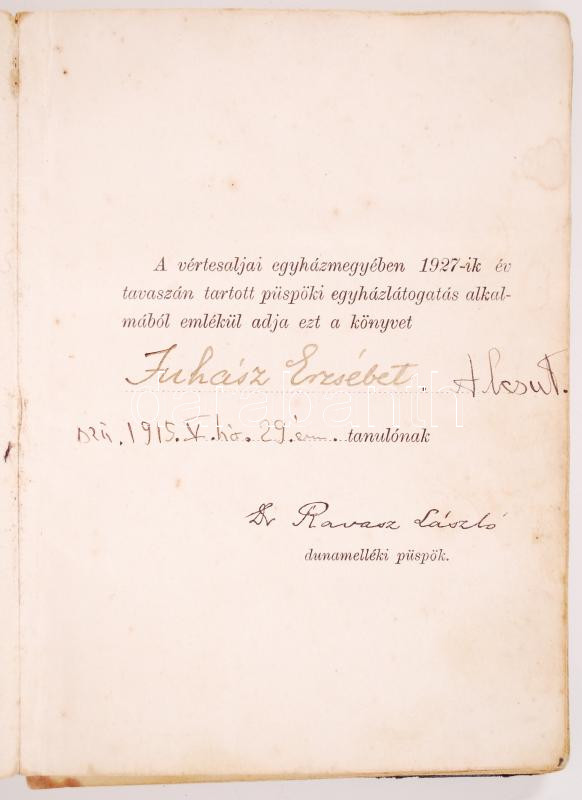 A vértesaljai egyházmegyében 1927-ik év
tavaszán tartott püspöki egyházlátogatás alkal-
mából emlékül adja ezt a könyvet
Juhász Erzsébet Alcsut.
darabanth
szü. 1915. V. hó. 29.én. tanulónak
Dr Ravasz László
dunamelléki püspök.